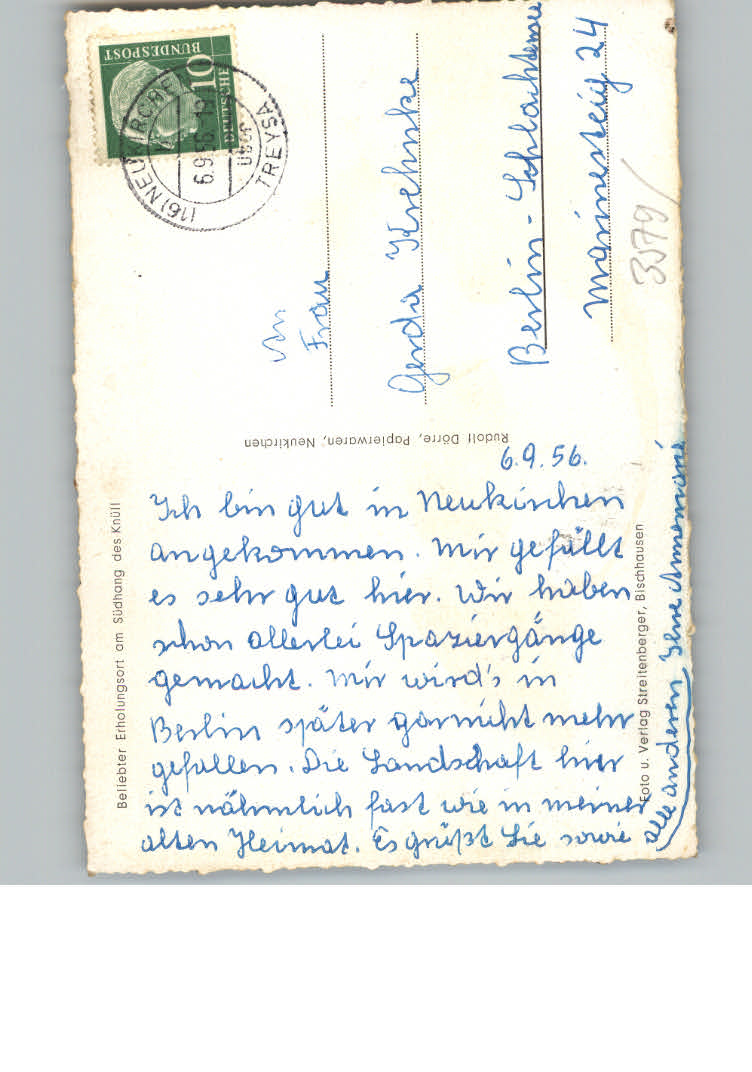 6.9.56.
Ich bin gut in Neukirchen
angekommen. Mir gefällt
es sehr gut hier. Wir haben
schon allerlei Spaziergänge
gemacht. Mir wird's in
Berlin später garnicht mehr
gefallen. Die Landschaft hier
ist nähmlich fast wie in meiner
alten Heimat. Es grüßt Sie sowie
alle anderen Ihre Annemarie
An
Frau
Gerda Krehnke
Berlin-Schlachtensee
Marinesteig 24
3579/
Beliebter Erholungsort am Südhang des Knüll
Rudolf Dörre, Papierwaren, Neukirchen
Foto u. Verlag Streitenberger, Bischhausen
DEUTSCHE
BUNDESPOST
10
(16) NEUKIRCHE
6.9.56
TREYSA